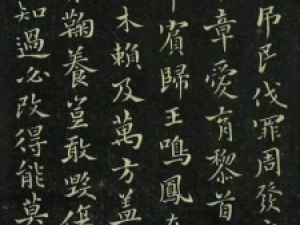 吊民伐罪周發
章愛育黎首
賓歸王鳴鳳在
木賴及萬方蓋
鞠養豈敢毀傷
知過必改得能莫